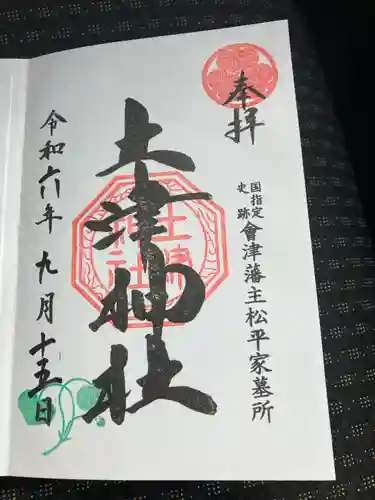 奉拝
国指定
史跡
會津藩主松平家墓所
土津神社
土津
神社
令和六年九月十五日